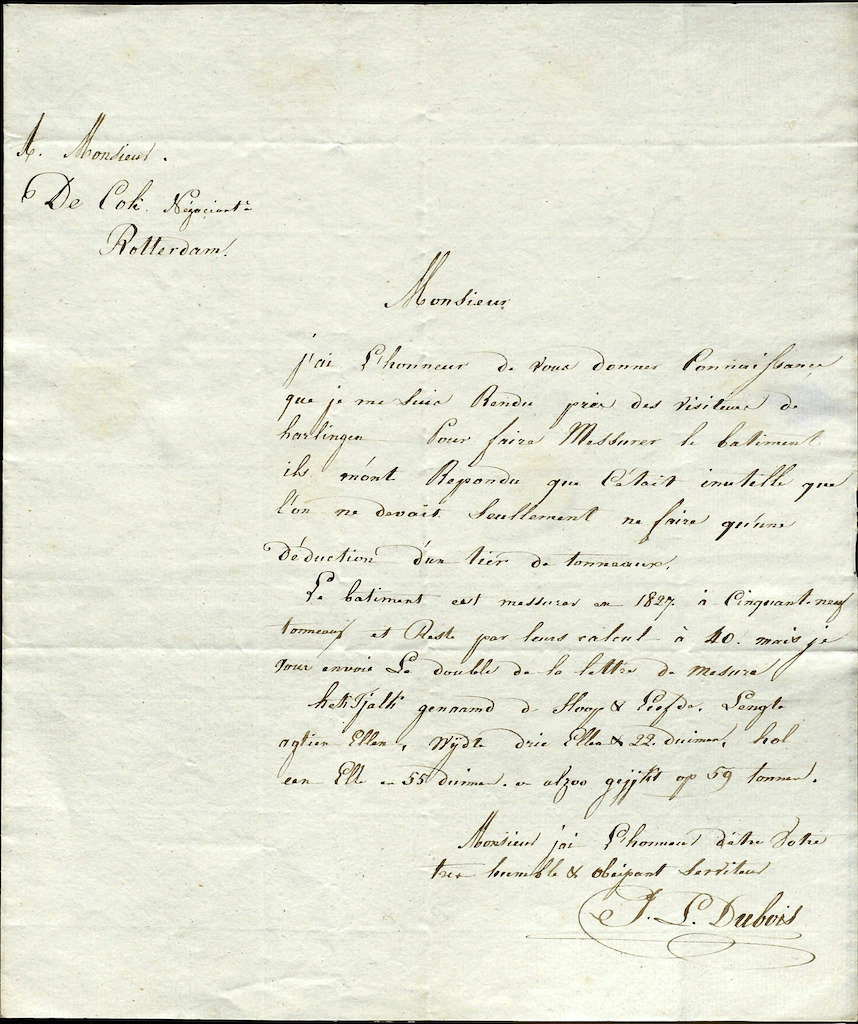 A. Monsieur.
De Cok. Négociant à
Rotterdam.
Monsieur
j'ai L'honneur de vous donner Connaissance
que je me suis Rendu près des visiteurs de
harlingen Pour faire Messurer le batiment
ils m'ont Repondu que C'était inutille que
l'on ne devait Seullement ne faire qu'une
déduction d'un tier de tonneaux.
Le batiment est messurer en 1827. à Cinquant-neuf
tonneaux et Reste par leurs calcul à 40. mais je
vous envoie Le double de la lettre de mesure
het Tjalk genaamd d Hoop & Liefde, Lengte
agtien Ellen, Wijdte drie Ellen & 22. Duimen, hol
een Elle en 55 Duimen. en alzoo geijkt op 59 tonnen.
Monsieur j'ai L'honneur d'être Votre
tres humble & obeissant serviteur
J. L. Dubois